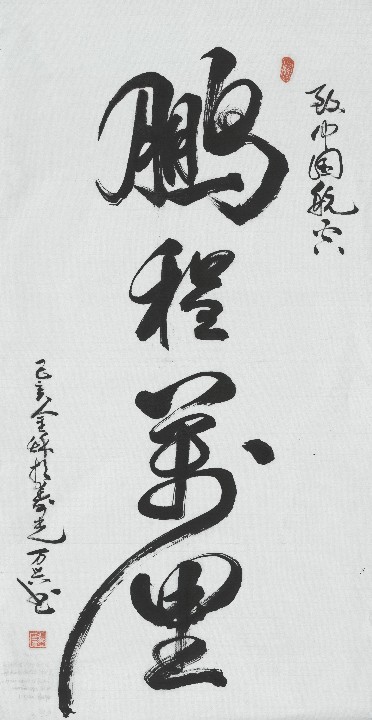 致中国航空
鹏程萬里
己亥金秋于寿光万兴书